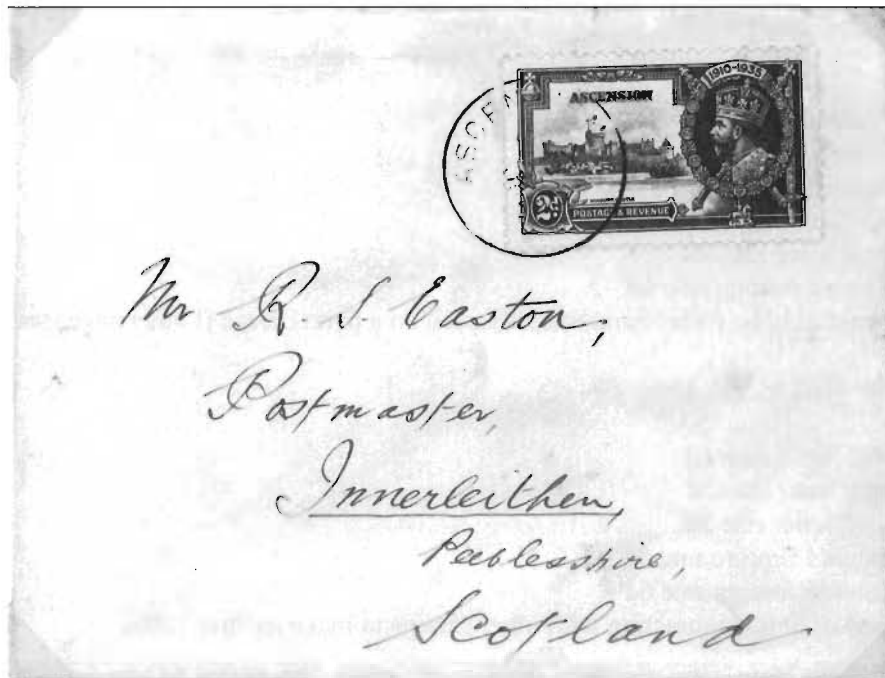 1910-1935
ASCENSION
ASCEN
2d
POSTAGE & REVENUE
Mr R S Easton,
Postmaster,
Innerleithen,
Peeblesshire,
Scotland